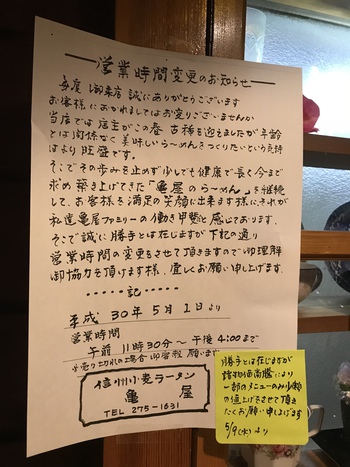 営業時間変更のお知らせ
毎度 御来店 誠にありがとうございます
お客様におかれましてはお変りございませんか
当店では店主がこの春 古稀を迎えましたが年齢
とは関係なく美味しいら〜めんをつくりたいという気持
はより旺盛です。
そこでその歩みを止めず少しでも健康で長く今まで
求め築き上げてきた「亀屋のら〜めん」を継続
して、お客様を満足の笑顔に出来ます様に、それが
私達亀屋ファミリーの働き甲斐と感じております。
そこで誠に勝手とは存じますが下記の通り
営業時間の変更をさせて頂きますので御理解
御協力を頂けます様、宜しくお願い申し上げます。
・・・・・記・・・・・
平成 30年 5月1日より
営業時間
午前 11時30分〜午後 4:00まで
※売り切れの場合御容赦願います
信州小麦ラータン
亀 屋
TEL 275-1631
勝手とは存じますが
諸物価高騰により
一部のメニューのみ小額
の値上げさせて頂き
たくお願い申し上げます
5/9(水)より